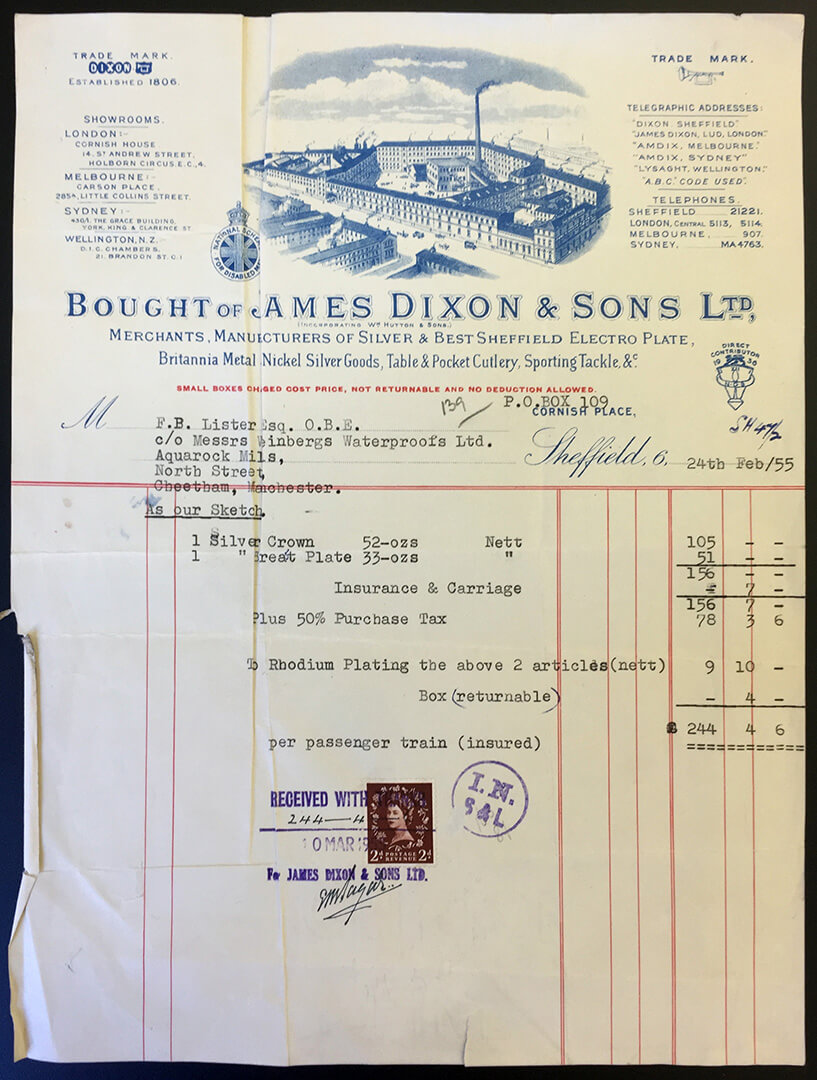 TRADE MARK.
DIXON
ESTABLISHED 1806.
SHOWROOMS.
LONDON:-
CORNISH HOUSE
14, ST ANDREW STREET,
HOLBORN CIRCUS. E.C., 4.
MELBOURNE:-
CARSON PLACE,
285A, LITTLE COLLINS STREET.
SYDNEY:-
430/1, THE GRACE BUILDING,
YORK, KING & CLARENCE ST.
WELLINGTON, N.Z.-
D.I.C. CHAMBERS,
21. BRANDON ST. C.1
TRADE MARK.
TELEGRAPHIC ADDRESSES:
"DIXON SHEFFIELD".
"JAMES DIXON, LUD, LONDON."
"AMDIX, MELBOURNE."
"AMDIX, SYDNEY"
"LYSAGHT, WELLINGTON."
"A.B.C." CODE USED.
TELEPHONES.
SHEFFIELD 21221.
LONDON, CENTRAL 5113, 5114.
MELBOURNE, 907.
SYDNEY, MA4763.
NATIONAL SCHEME
FOR DISABLED
BOUGHT OF JAMES DIXON & SONS LTD,
(INCORPORATING WM HUTTON & SONS.)
MERCHANTS, MANUFACTURERS OF SILVER & BEST SHEFFIELD ELECTRO PLATE,
Britannia Metal, Nickel Silver Goods, Table & Pocket Cutlery, Sporting Tackle, &c.
DIRECT
CONTRIBUTOR
1936
SMALL BOXES CHARGED COST PRICE, NOT RETURNABLE AND NO DEDUCTION ALLOWED.
139
P.O.BOX 109
CORNISH PLACE,
M F.B. Lister Esq. O.B.E.
c/o Messrs Weinbergs Waterproofs Ltd.
Aquarock Mils,
North Street,
Cheetham, Manchester.
Sheffield, 6. 24th Feb/55
As our Sketch.
1 Silver Crown 52-ozs Nett 105 - -
1 " Great Plate 33-ozs " 51 - -
156 - -
Insurance & Carriage - 7 -
156 7 -
Plus 50% Purchase Tax 78 3 6
To Rhodium Plating the above 2 articles(nett) 9 10 -
Box (returnable) - 4 -
£ 244 4 6
per passenger train (insured)
RECEIVED WITH
244-4
10 MAR 19
For JAMES DIXON & SONS LTD.
2d POSTAGE REVENUE 2d
I.N.
S & L